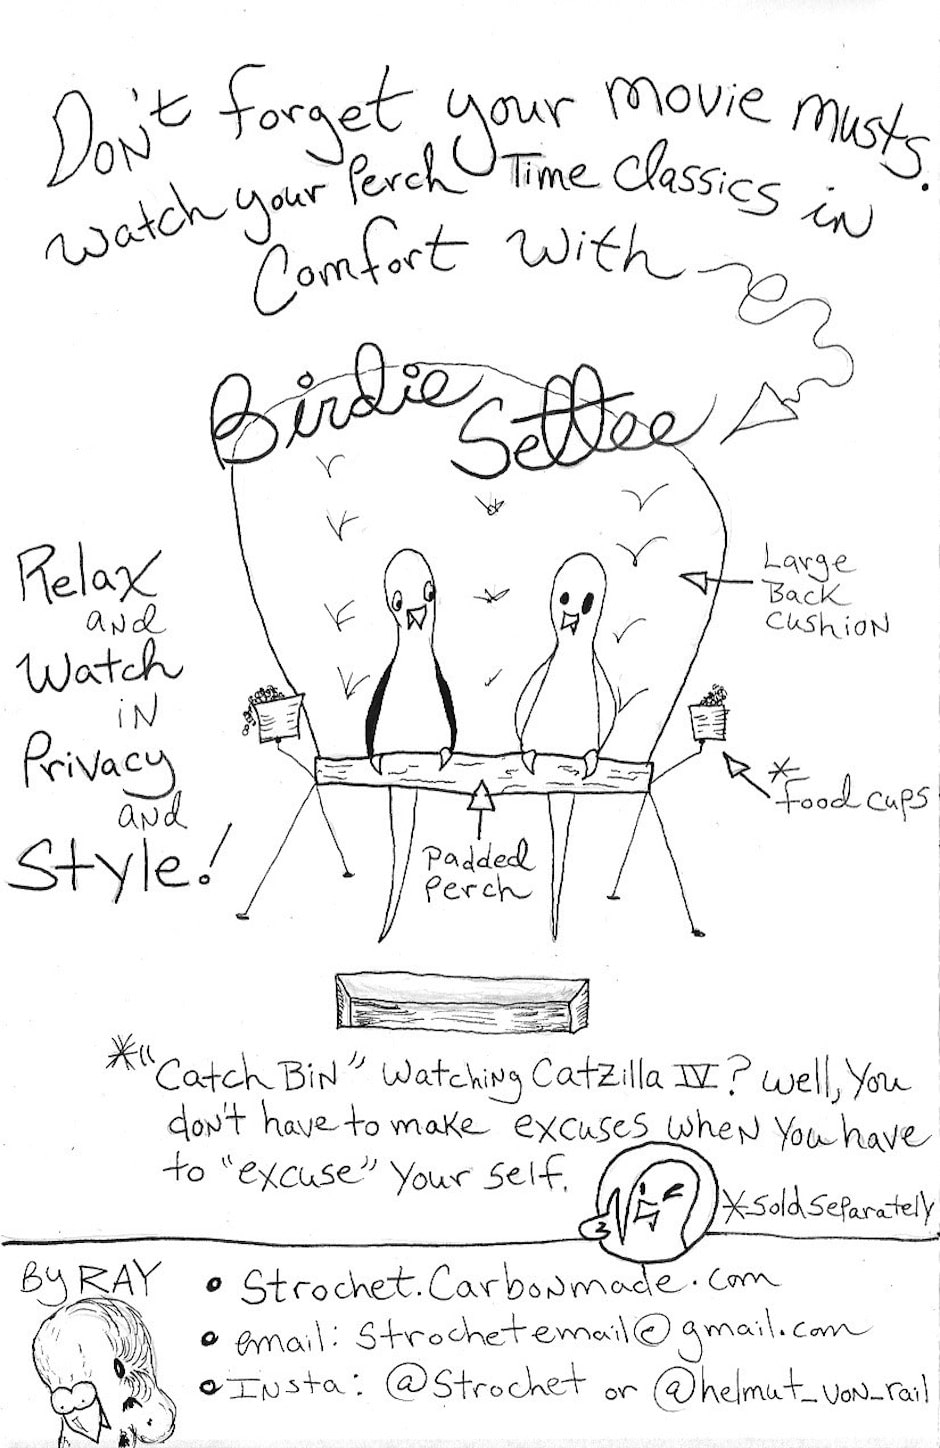 Don't forget your movie musts.
Watch your Perch Time Classics in
Comfort with
Birdie Settee
Relax
and
Watch
in
Privacy
and
Style!
Large
Back
Cushion
*Food cups
Padded
Perch
*"Catch Bin" Watching Catzilla IV? Well, You
don't have to make excuses when you have
to "excuse" your self.
*Sold Separately
By RAY
• Strochet.Carbonmade.com
• email: Strochetemail@gmail.com
• Insta: @Strochet or @helmut_von_rail